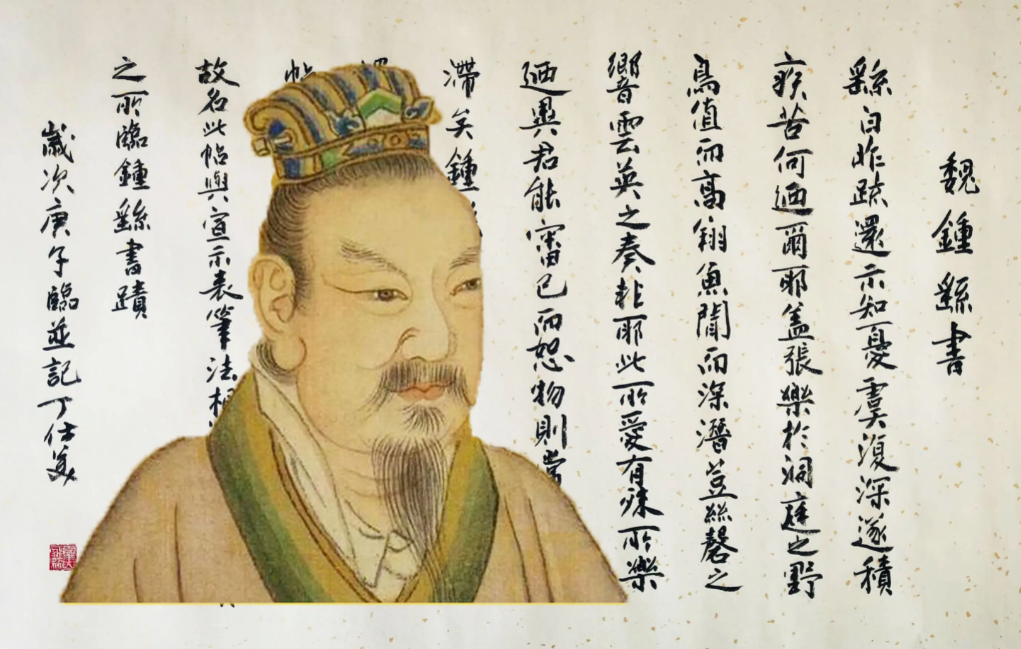 魏鍾繇書
繇白昨疏還示知憂虞復深遂積
疾苦何迺爾耶蓋張樂於洞庭之野
鳥值而高翔魚聞而深潛豈絲磬之
響雲英之奏非耶此所愛有殊所樂
迺異君能審己而恕物則常
滯矣鍾
帖
故名此帖與宣示表筆法
之所臨鍾繇書蹟
歲次庚子臨並記丁仕美